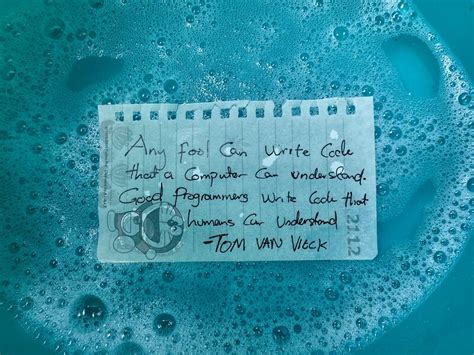 Any fool Can Write Code
that a Computer Can understand.
Good Programmers Write Code that
humans Can Understand
-TOM VAN VLECK
2112